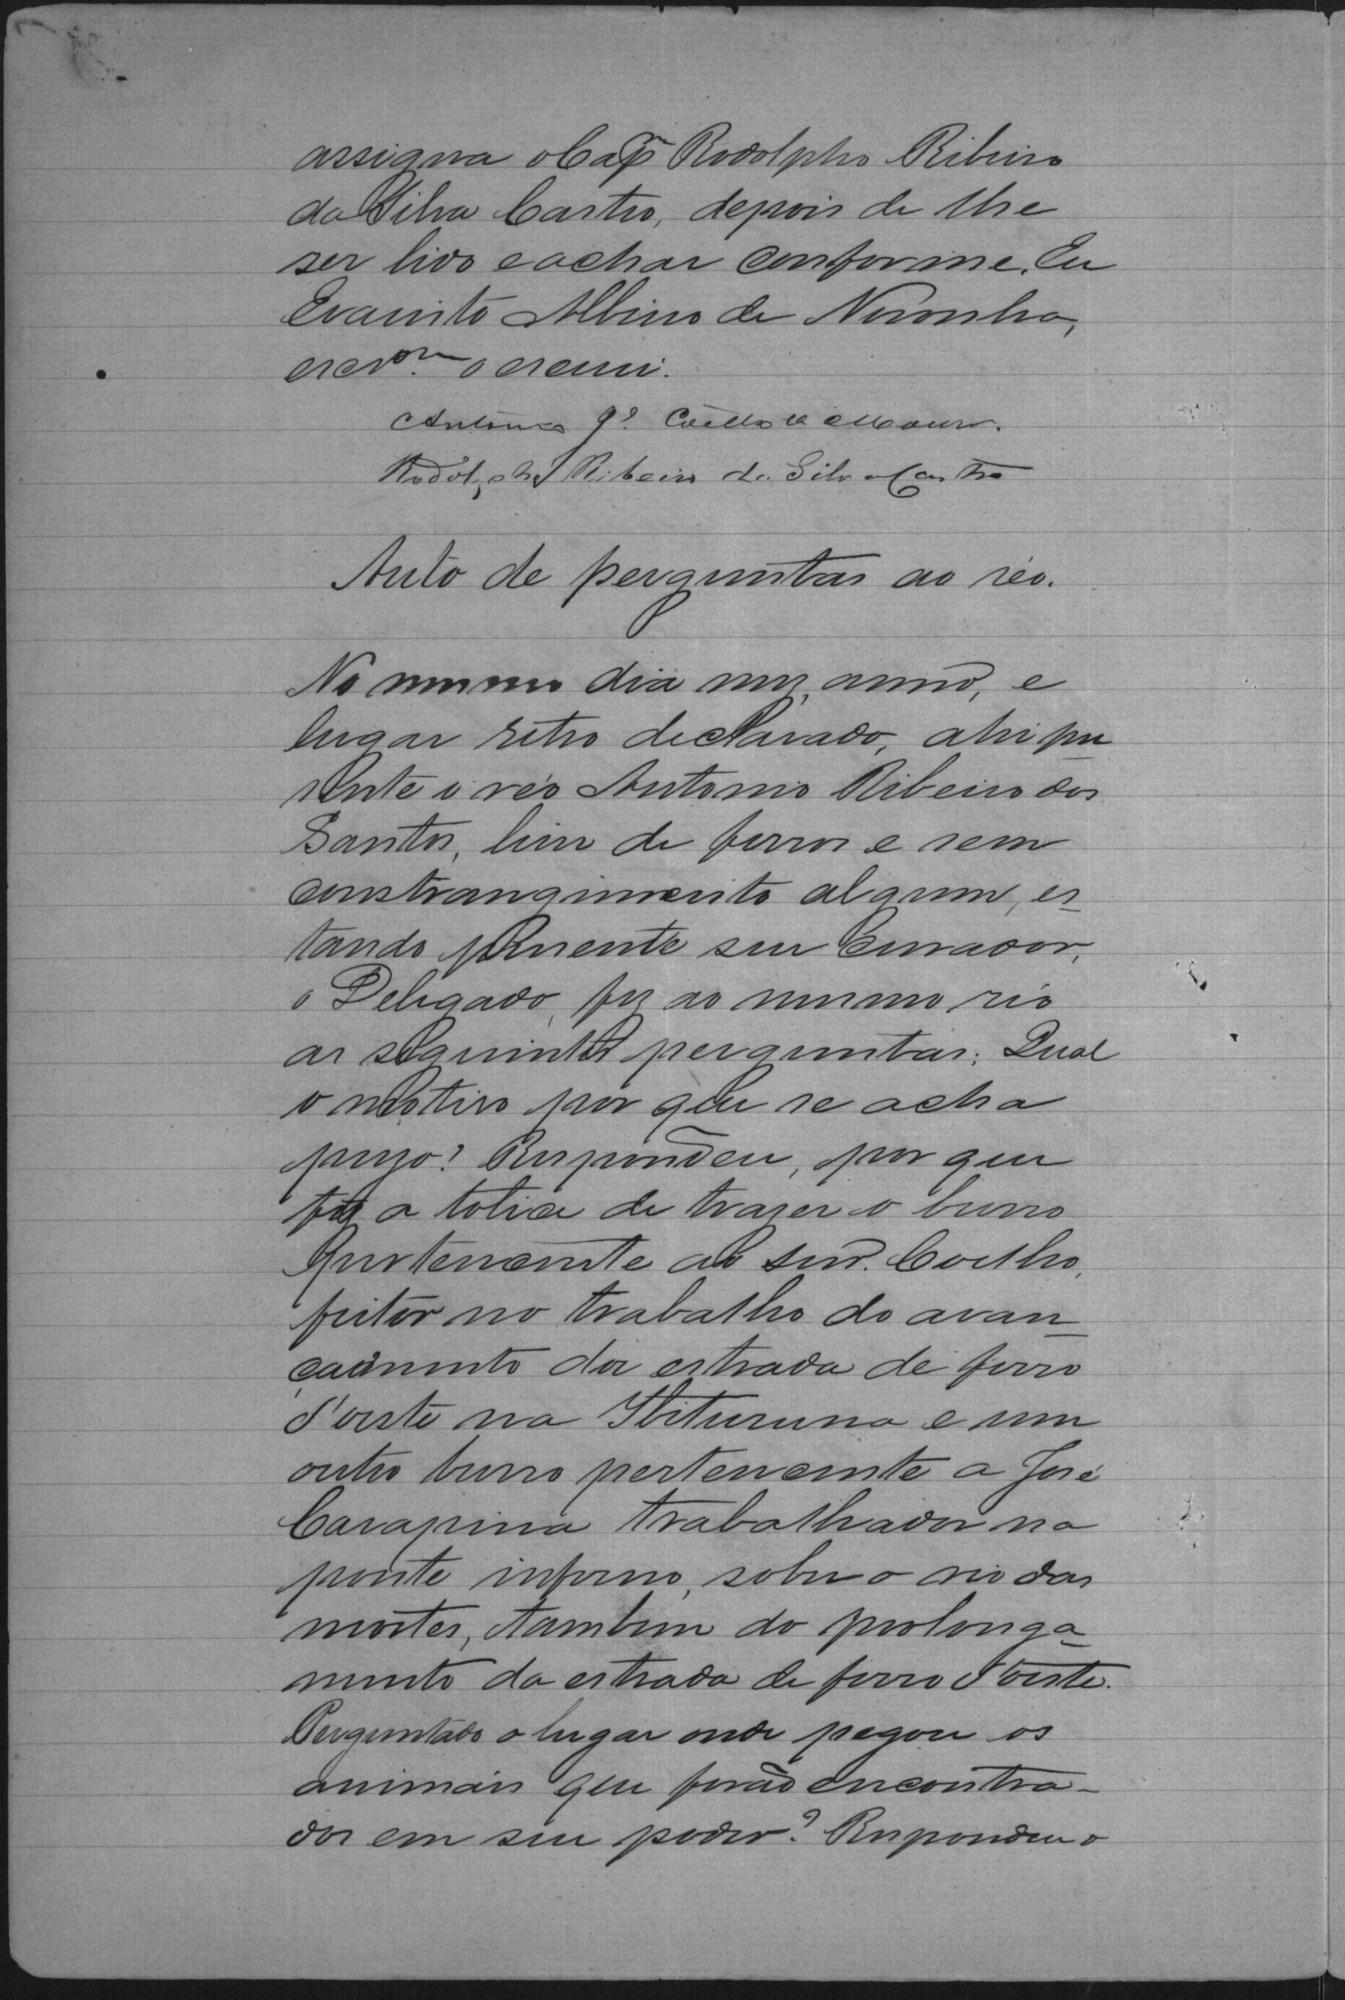 assigna o Capm Rodolpho Ribeiro
da Silva Castro, depois de lhe
ser lido e achar conforme. Eu
Evaristo Albino de Noronha,
escrom. o escrevi.
Antonio Gs. Coelho de Moura.
Rodolpho Ribeiro da Silva Castro
Auto de perguntas ao réo.
No mesmo dia mez, anno, e
lugar retro declarado, ahi pre
sente o réo Antonio Ribeiro dos
Santos, livre de ferros e sem
constrangimento algum, es-
tando presente seu Curador,
o Delegado, fez ao mesmo réo
as seguintes perguntas: Qual
o motivo por que se acha
prezo? Respondeu, por que
fez a tolice de trazer o burro
pertencente ao Snr. Coelho,
feitor no trabalho do avan-
çamento da estrada de ferro
d'oeste na Ibituruna e um
outro burro pertencente a José
Carapina trabalhador na
ponte inferno, sobre o rio das
mortes, tambem do prolonga-
mento da estrada de ferro d'oeste.
Perguntado o lugar onde pegou os
animais que forão encontra-
dos em seu poder? Respondeu o